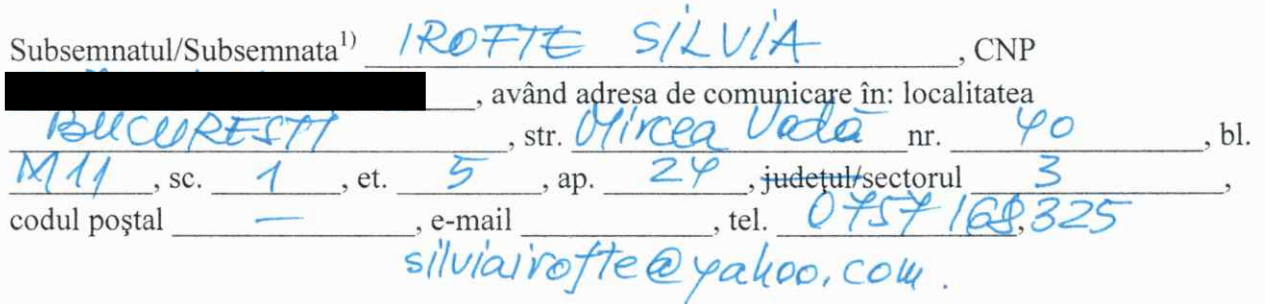 Subsemnatul/Subsemnata1) IROFTE SILVIA, CNP
, având adresa de comunicare în: localitatea
BUCUREȘTI, str. Mircea Vodă nr. 40, bl.
M11, sc. 1, et. 5, ap. 24, județul/sectorul 3,
codul poștal —, e-mail, tel. 0757168325
silviairofte@yahoo.com.